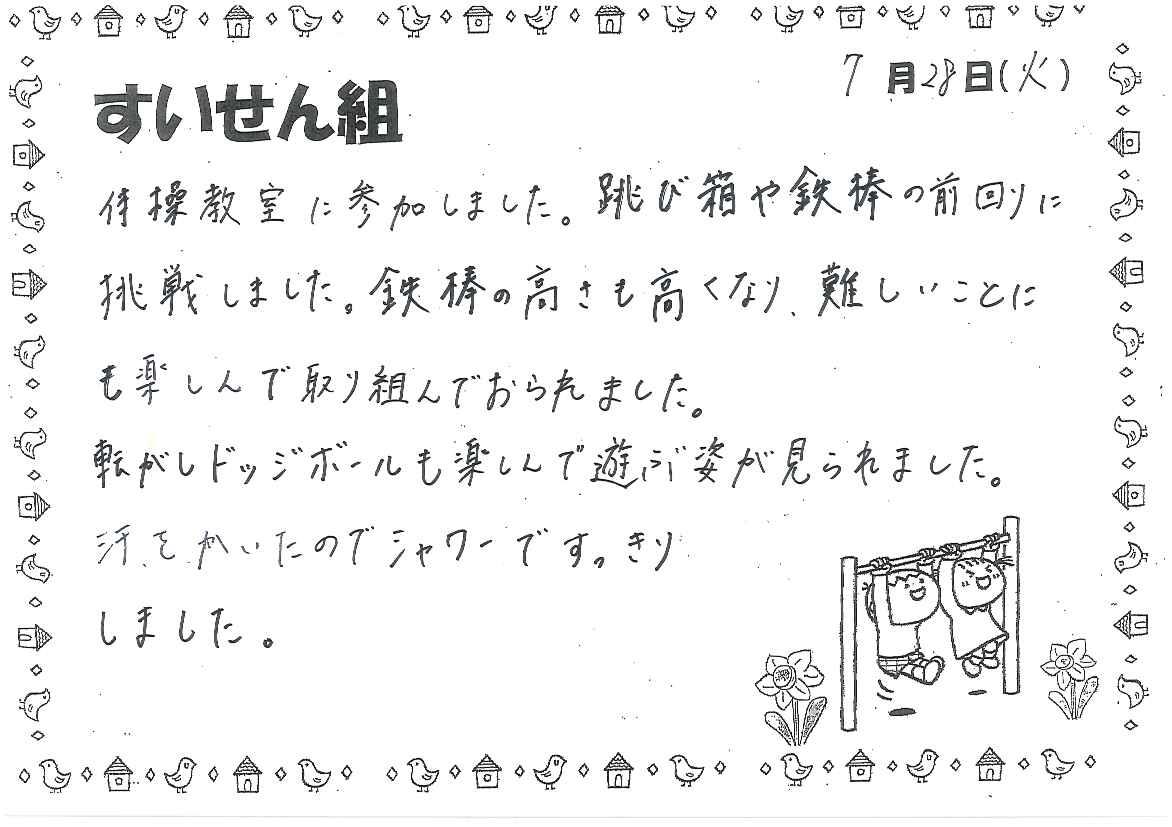 7月28日(火)
すいせん組
体操教室に参加しました。跳び箱や鉄棒の前回りに
挑戦しました。鉄棒の高さも高くなり、難しいことに
も楽しんで取り組んでおられました。
転がしドッジボールも楽しんで遊ぶ姿が見られました。
汗をかいたのでシャワーですっきり
しました。